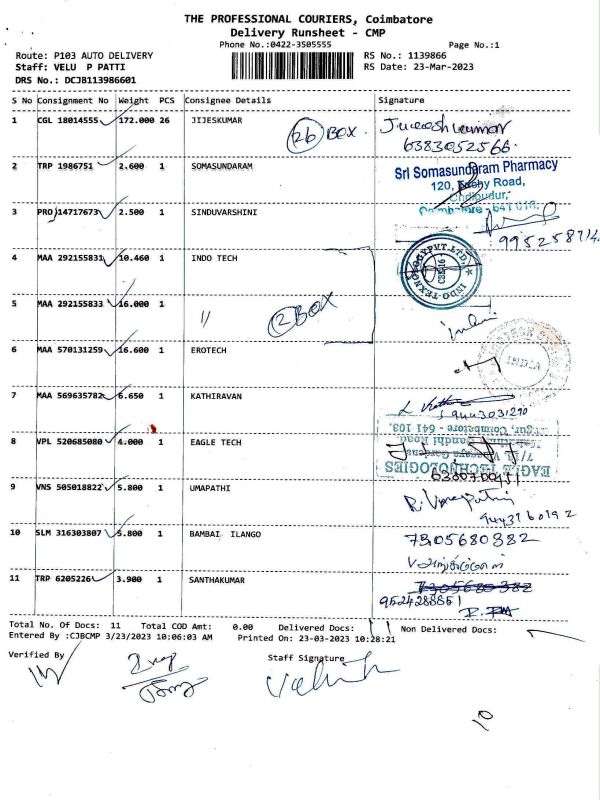 THE PROFESSIONAL COURIERS, Coimbatore
Delivery Runsheet - CMP
Phone No.:0422-3505555 Page No.:1
Route: P103 AUTO DELIVERY RS No.: 1139866
Staff: VELU P PATTI RS Date: 23-Mar-2023
DRS No.: DCJB113986601
S No Consignment No Weight PCS Consignee Details Signature
1 CGL 18014555 172.000 26 JIJESKUMAR
26 BOX.
6383052566
2 TRP 1986751 2.600 1 SOMASUNDARAM
Sri Somasundaram Pharmacy
120, Road,
Coimbatore - 641 016.
3 PROJ14717673 2.500 1 SINDUVARSHINI
4 MAA 292155831 10.460 1 INDO TECH
5 MAA 292155833 16.000 1 //
2 BOX
6 MAA 570131259 16.600 1 EROTECH
7 MAA 569635782 6.650 1 KATHIRAVAN
9443031290
8 VPL 520685080 4.000 1 EAGLE TECH
EAGLE TECHNOLOGIES
Coimbatore - 641 103.
9 VNS 505018822 5.800 1 UMAPATHI
R. Umapathi
10 SLM 316303807 5.800 1 BAMBAI ILANGO
7305680382
11 TRP 6205226 3.900 1 SANTHAKUMAR
7305680382
9524288551
Total No. Of Docs: 11 Total COD Amt: 0.00 Delivered Docs: Non Delivered Docs:
Entered By :CJBCMP 3/23/2023 10:06:03 AM Printed On: 23-03-2023 10:28:21
Verified By Staff Signature
10